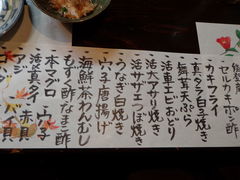 セルカキホン酢
カキフライ
真ダラ白子焼き
舞茸天ぷら
活車エビおどり
活大アサリ焼き
活サザエつぼ焼き
うなぎ白焼き
穴子唐揚げ
海鮮茶わんむし
もずく酢なまこ酢
本マグロ 穴子
活〆真ダイ 赤貝
アジ バイ貝